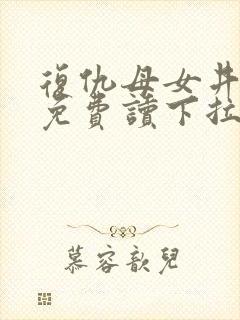 復仇母女丼
免費讀下拉
慕容歆兒